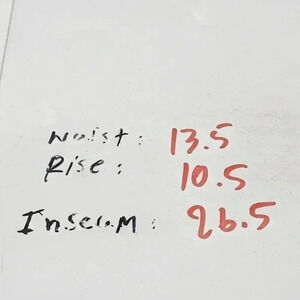 Waist: 13.5
Rise: 10.5
Inseam: 26.5